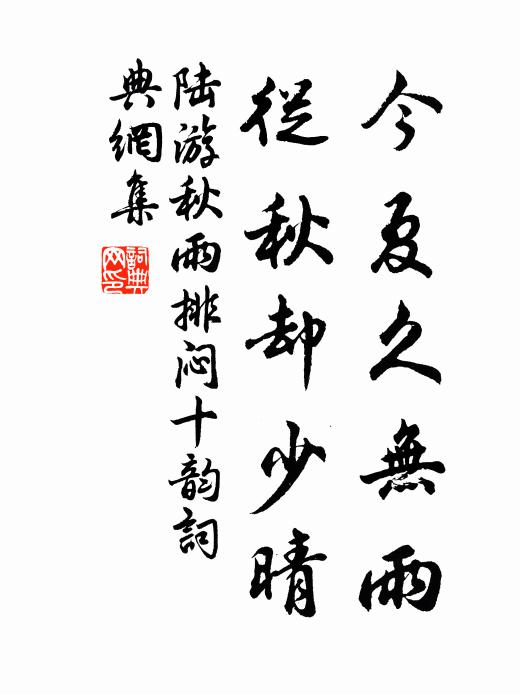 今夏久無雨
從秋却少晴
陆游秋雨排闷十韵詞
典網集
詞典网印